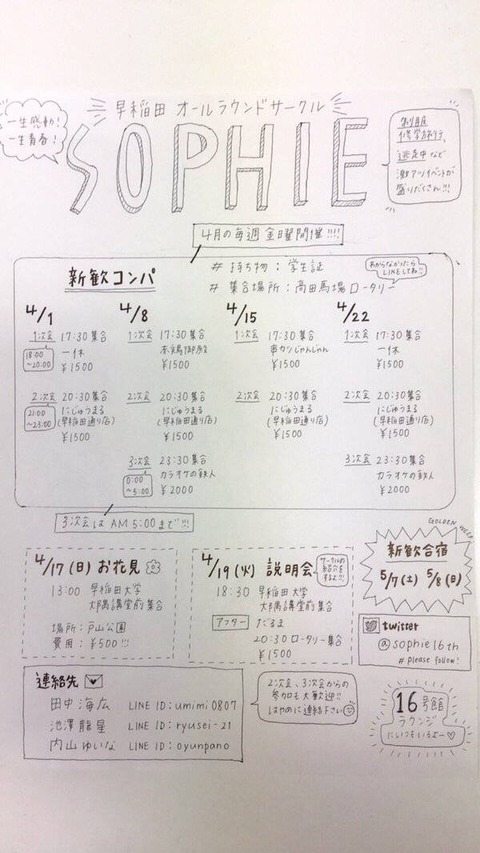 一生感動!
一生青春!
早稲田 オールラウンドサークル
SOPHIE
制服
修学旅行
逃走中 など
激アツイベントが
盛りだくさん!!!
4月の毎週 金曜開催!!!!
新歓コンパ
# 持ち物:学生証
# 集合場所:高田馬場ロータリー
わからなかったら
LINEしてね!!
4/1
1次会 17:30集合
18:00
~20:00
一休
¥1500
2次会 20:30集合
21:00
~23:00
にじゅうまる
(早稲田通り店)
¥1500
4/8
1次会 17:30集合
¥1500
2次会 20:30集合
にじゅうまる
(早稲田通り店)
¥1500
3次会 23:30集合
0:00
~5:00
カラオケの鉄人
¥2000
4/15
1次会 17:30集合
串カツじゃんじゃん
¥1500
2次会 20:30集合
にじゅうまる
(早稲田通り店)
¥1500
4/22
1次会 17:30集合
一休
¥1500
2次会 20:30集合
にじゅうまる
(早稲田通り店)
¥1500
3次会 23:30集合
カラオケの鉄人
¥2000
3次会は AM 5:00まで!!!
4/17(日) お花見
13:00 早稲田大学
大隈講堂前集合
場所:戸山公園
費用:¥500!!!
4/19(火) 説明会
サークルの
紹介を
するよ!!!
18:30 早稲田大学
大隈講堂前集合
アフター だるま
20:30ロータリー集合
¥1500
GOLDEN WEEK
新歓合宿
5/7(土) 5/8(日)
twitter
@sophie16th
# please follow!
連絡先
田中 海広 LINE ID:umimi0807
池澤 龍星 LINE ID:ryusei-21
内山 ゆいな LINE ID:oyunpano
2次会、3次会からの
参加も大歓迎!!
はやめに連絡下さい
16号館
ラウンジ
にいつもいるよー♡